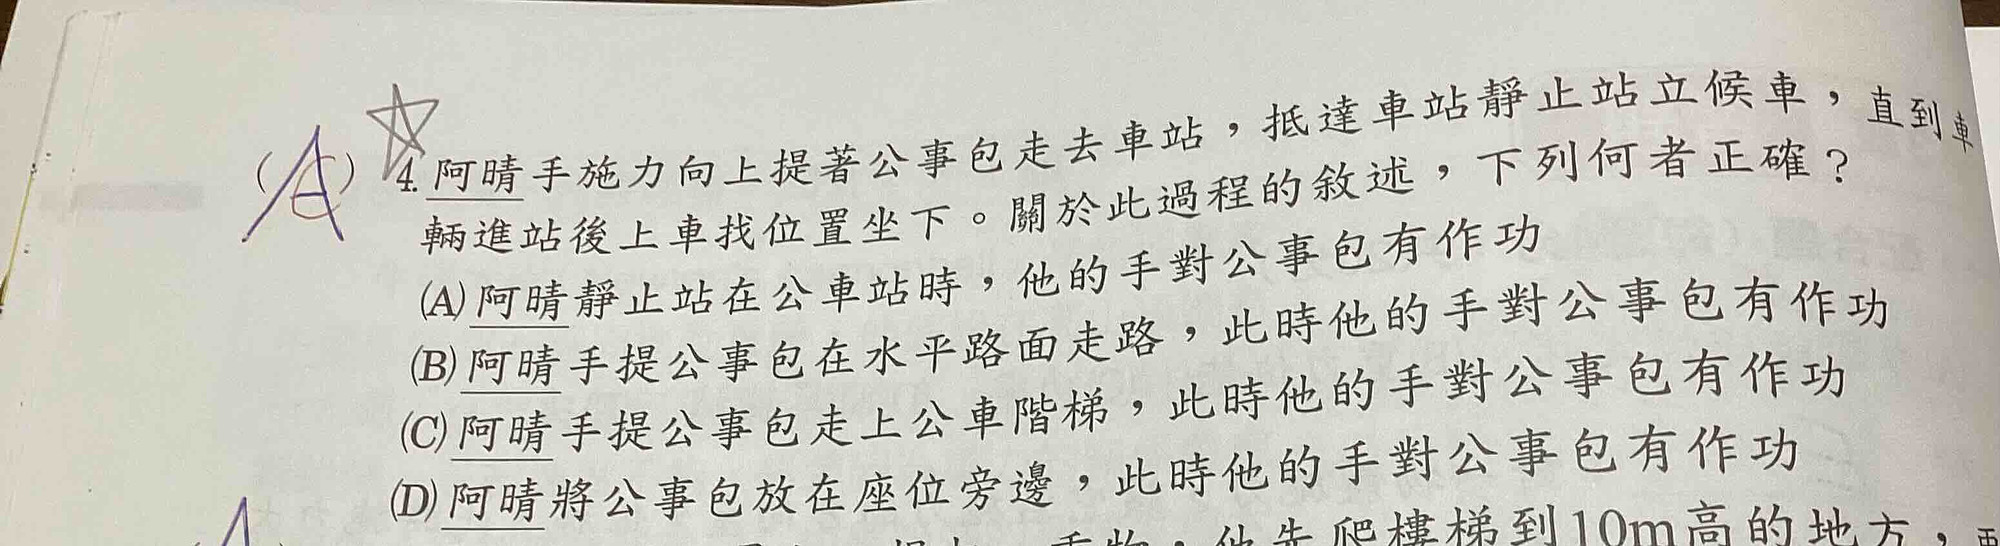 (A) 4. 阿晴手施力向上提著公事包走去車站，抵達車站靜止站立候車，直到車
輛進站後上車找位置坐下。關於此過程的敘述，下列何者正確？
(A)阿晴靜止站在公車站時，他的手對公事包有作功
(B)阿晴手提公事包在水平路面走路，此時他的手對公事包有作功
(C)阿晴手提公事包走上公車階梯，此時他的手對公事包有作功
(D)阿晴將公事包放在座位旁邊，此時他的手對公事包有作功
他先爬樓梯到10m高的地方，